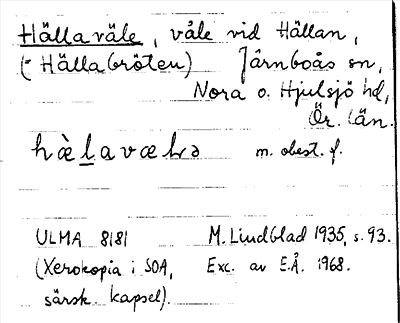 Hällaväle, våle vid Hällan,
(= Hällabröten) Järnboås sn,
Nora o. Hjulsjö hd,
Ör. län.
hæ̀lavælə m. obest. f.
ULMA 8181 M. Lindblad 1935, s. 93.
(Xerokopia i SOA, Exc. av E.Å. 1968.
särsk. kapsel).